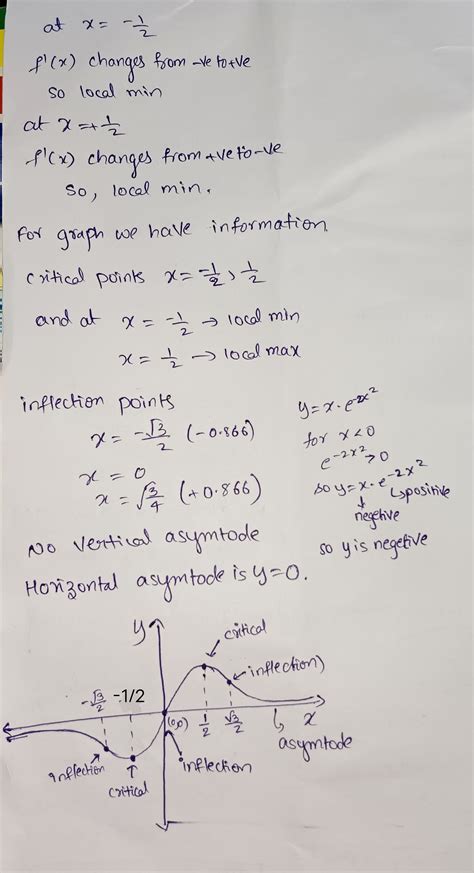 at x = -1/2
f'(x) changes from -ve to +ve
so local min
at x = +1/2
f'(x) changes from +ve to -ve
So, local min.
for graph we have information
critical points x = -1/2, 1/2
and at x = -1/2 → local min
x = 1/2 → local max
inflection points
x = -√3/2 (-0.866)
x = 0
x = √3/4 (+0.866)
y = x·e^2x²
for x<0
e^-2x² > 0
so y = x·e^-2x²
↳ positive
↓
negetive
so y is negetive
No vertical asymtode
Horizontal asymtode is y=0.
y
critical
inflection)
-√3/2 -1/2
(0,0) 1/2 √3/2 x
asymtode
inflection
critical
inflection